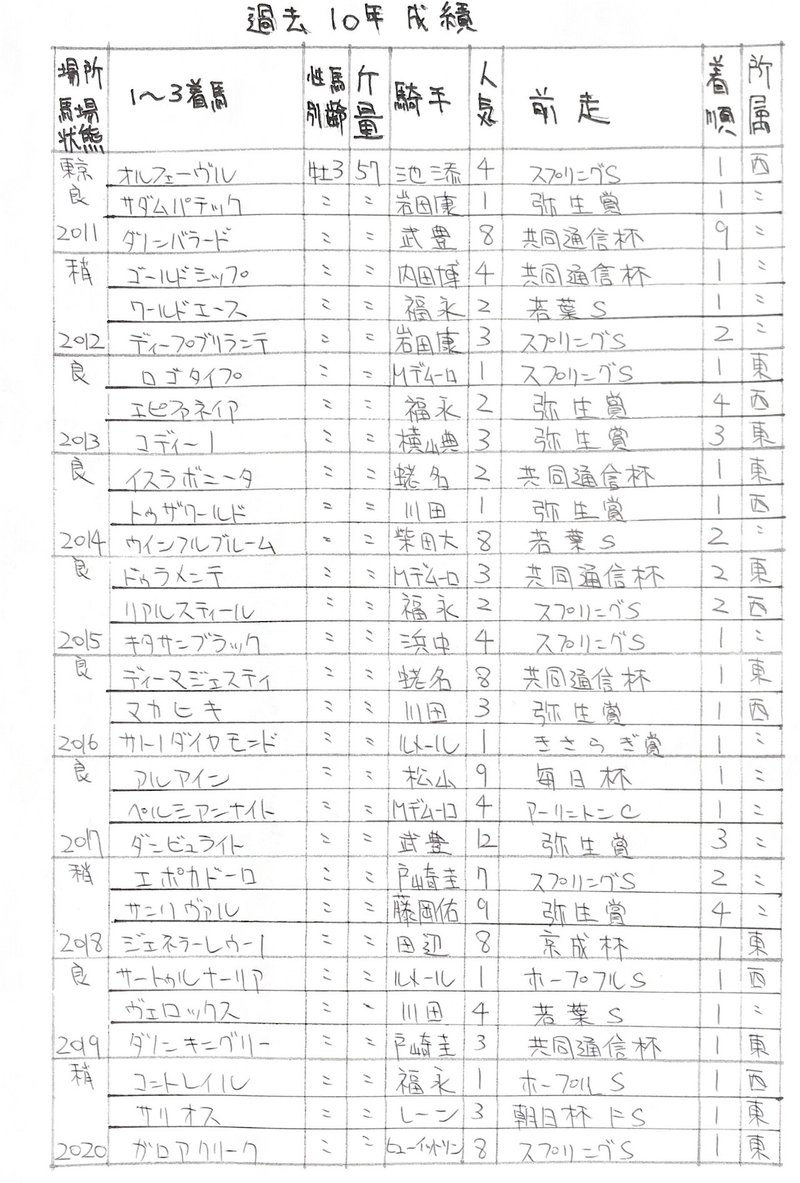 過去10年成績
場所 馬場状態 1〜3着馬 性別 馬齢 斤量 騎手 人気 前走 着順 所属
東京 良 オルフェーヴル 牡3 57 池添 4 スプリングS 1 西
サダムパテック 〃 〃 岩田康 1 弥生賞 1 〃
2011 ダノンバラード 〃 〃 武豊 8 共同通信杯 9 〃
稍 ゴールドシップ 〃 〃 内田博 4 共同通信杯 1 〃
ワールドエース 〃 〃 福永 2 若葉S 1 〃
2012 ディープブリランテ 〃 〃 岩田康 3 スプリングS 2 〃
良 ロゴタイプ 〃 〃 Mデムーロ 1 スプリングS 1 東
エピファネイア 〃 〃 福永 2 弥生賞 4 西
2013 コディーノ 〃 〃 横山典 3 弥生賞 3 東
良 イスラボニータ 〃 〃 蛯名 2 共同通信杯 1 東
トゥザワールド 〃 〃 川田 1 弥生賞 1 西
2014 ウインフルブルーム 〃 〃 柴田大 8 若葉S 2 〃
良 ドゥラメンテ 〃 〃 Mデムーロ 3 共同通信杯 2 東
リアルスティール 〃 〃 福永 2 スプリングS 2 西
2015 キタサンブラック 〃 〃 浜中 4 スプリングS 1 〃
良 ディーマジェスティ 〃 〃 蛯名 8 共同通信杯 1 東
マカヒキ 〃 〃 川田 3 弥生賞 1 西
2016 サトノダイヤモンド 〃 〃 ルメール 1 きさらぎ賞 1 〃
良 アルアイン 〃 〃 松山 9 毎日杯 1 〃
ペルシアンナイト 〃 〃 Mデムーロ 4 アーリントンC 1 〃
2017 ダンビュライト 〃 〃 武豊 12 弥生賞 3 〃
稍 エポカドーロ 〃 〃 戸崎圭 7 スプリングS 2 〃
サンリヴァル 〃 〃 藤岡佑 9 弥生賞 4 〃
2018 ジェネラーレウーノ 〃 〃 田辺 8 京成杯 1 東
良 サートゥルナーリア 〃 〃 ルメール 1 ホープフルS 1 西
ヴェロックス 〃 〃 川田 4 若葉S 1 〃
2019 ダノンキングリー 〃 〃 戸崎圭 3 共同通信杯 1 東
稍 コントレイル 〃 〃 福永 1 ホープルS 1 西
サリオス 〃 〃 レーン 3 朝日杯FS 1 東
2020 ガロアクリーク 〃 〃 ヒューイットソン 8 スプリングS 1 東